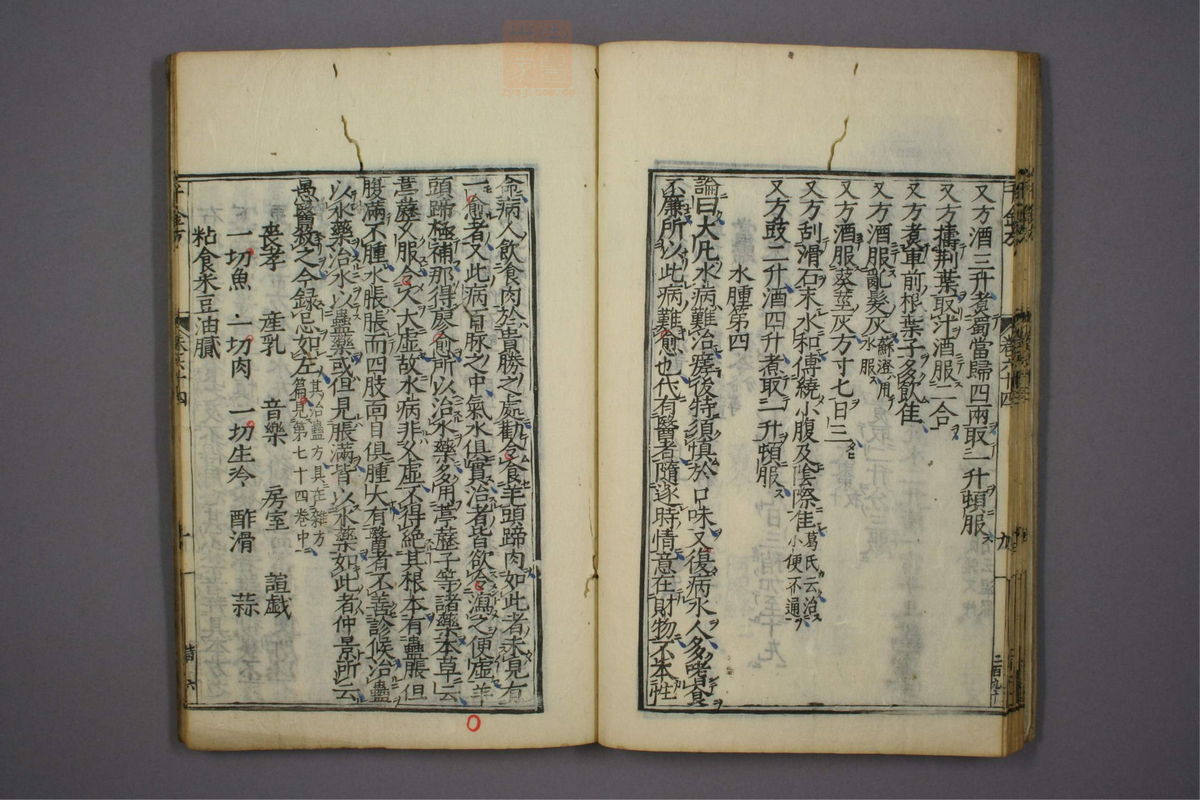 又方酒三升煑蜀當歸四兩取一升頓服
又方擣荆葉取汁酒服二合
又方煑車前根葉子多飲佳
又方酒服亂髮灰蘇澄用水服
又方酒服葵莖灰方寸七日三
又方刮滑石末水和傅繞小腹及陰際佳葛氏云治小便不通
又方豉二升酒四升煮取一升頓服
水腫第四
論曰大凡水病難治瘥後特須慎於口味又復病水人多嗜食
不廉所以此病難愈也代有醫者隨逐時情意在財物不本性
命病人飲食肉於貴勝之處勸令食羊頭蹄肉如此者未見有
一愈者又此病百脉之中氣水俱實治者皆欲令瀉之便虛羊
頭蹄極補那得瘳愈所以治水藥多用葶藶子等諸藥本草云
葶藶久服令人大虛故水病非久虛不得絶其根本有蠱脹但
腹滿不腫水脹脹而四肢靣目俱腫大有醫者不善診候治蠱
以水藥治水以蠱藥或但見脹滿皆以水藥如此者仲景所云
愚醫殺之今録忌如左其治蠱方具在雜方篇見第七十四卷中
喪孝 産乳 音樂 房室 諠戯
一切魚 一切肉 一切生冷 酢滑 蒜
粘食米豆油膩
千金方
卷六十四
九
千金方
卷六十四
十